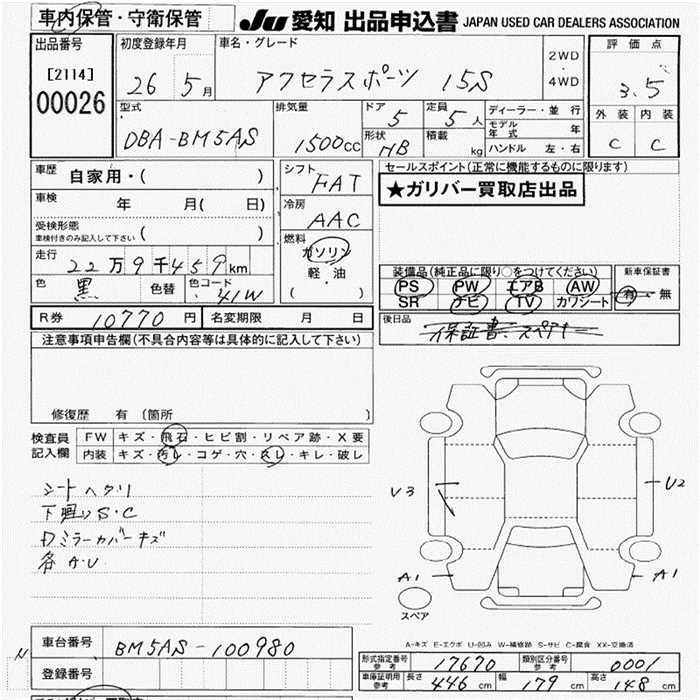 車内保管・守衛保管
JU 愛知 出品申込書 JAPAN USED CAR DEALERS ASSOCIATION
出品番号
[2114]
00026
初度登録年月
26 5月
車名・グレード
アクセラスポーツ 15S
2WD
・
4WD
評価点
3.5
外装 内装
C C
型式
DBA-BM5AS
排気量
1500cc
ドア
5
定員
5人
形状
HB
積載
kg
ディーラー・並行
モデル年式 年
ハンドル 左・右
車歴 自家用・( )
車検 年 月( 日)
受検形態
車検付きのみ記入して下さい ( )
走行 22万9千459km
色 黒 色替 色コード 41W
シフト
FAT
冷房
AAC
燃料
ガソリン
軽・油
( )
セールスポイント(正常に機能するものに限ります)
★ガリバー買取店出品
装備品(純正品に限り○をつけてください)
PS PW エアB AW
SR ナビ TV カワシート
新車保証書
有・無
R券 10770円 名変期限 月 日
後日品 保証書、スペアキー
注意事項申告欄(不具合内容等は具体的に記入して下さい)
修復歴 有 〔箇所 〕
検査員記入欄
FW キズ・飛石・ヒビ割・リペア跡・X要
内装 キズ・汚レ・コゲ・穴・スレ・キレ・破レ
シートヘタリ
下廻りS・C
Dミラーカバーキズ
各A・U
U3
U2
A1
A1
スペア
A-キズ E-エクボ U-凹み W-補修跡 S-サビ C-腐食 XX-交換済
N
車台番号 BM5AS-100980
登録番号
形式指定番号 参考 17670 類別区分番号 参考 0001
車庫証明用 参考 長さ 446cm 幅 179cm 高さ 148cm